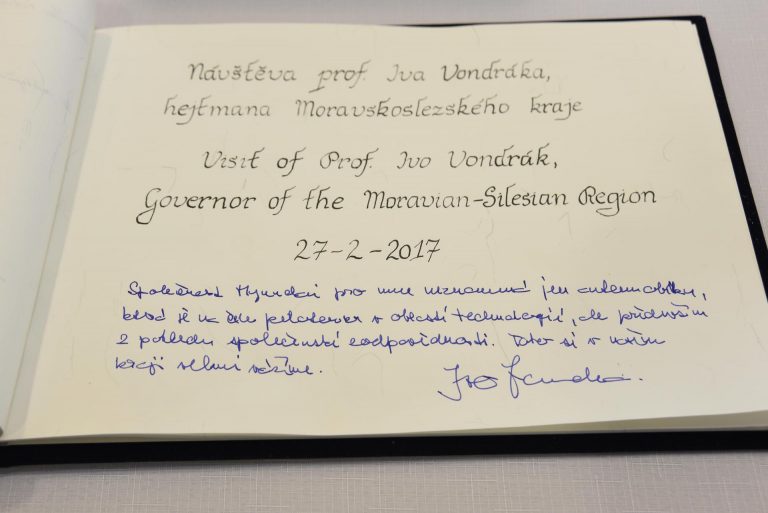 Návštěva prof. Iva Vondráka,
hejtmana Moravskoslezského kraje
Visit of Prof. Ivo Vondrák,
Governor of the Moravian-Silesian Region
27-2-2017
Společnost Hyundai pro mne neznamená jen automobilku,
v oblasti technologií, ale především
z pohledu společenské zodpovědnosti. Toho si v našem
kraji velmi vážíme.